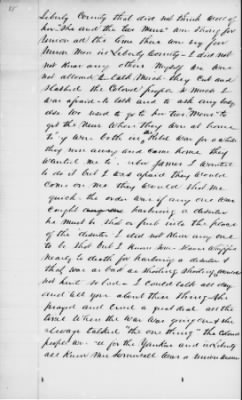 Liberty County that did not think well of
her. She and the two Mens' was strong for
Union all the time there was very few
Union Men in Liberty County - I did not
not hear any others Myself as we were
not allowed to talk Much. They Cut and
Slashed the Colored people so Much I
was afraid to talk and to ask any body
else We used to go to her two Mens' to
get the News When they were at home
They were both in the Rebel War for a while
they run away and came home they
wanted me to
to do it but I was afraid they Would
Come on Me they would shot me
quick. the order was if any one was
Caught harboring a deserter
he must be shot or put into the place
of the deserter I did not know any one
to be shot but I knew Men Whipped
nearly to death for harboring a deserter &
that was as bad as shooting
hurt so bad - I could talk all day
and tell you about these things She
prayed and Cried a great deal all the
time When the War Was going on & She
always talked "the one thing" the Colored
people were for the Yankees and in Liberty
all knew Mrs Somersall was a Union Woman